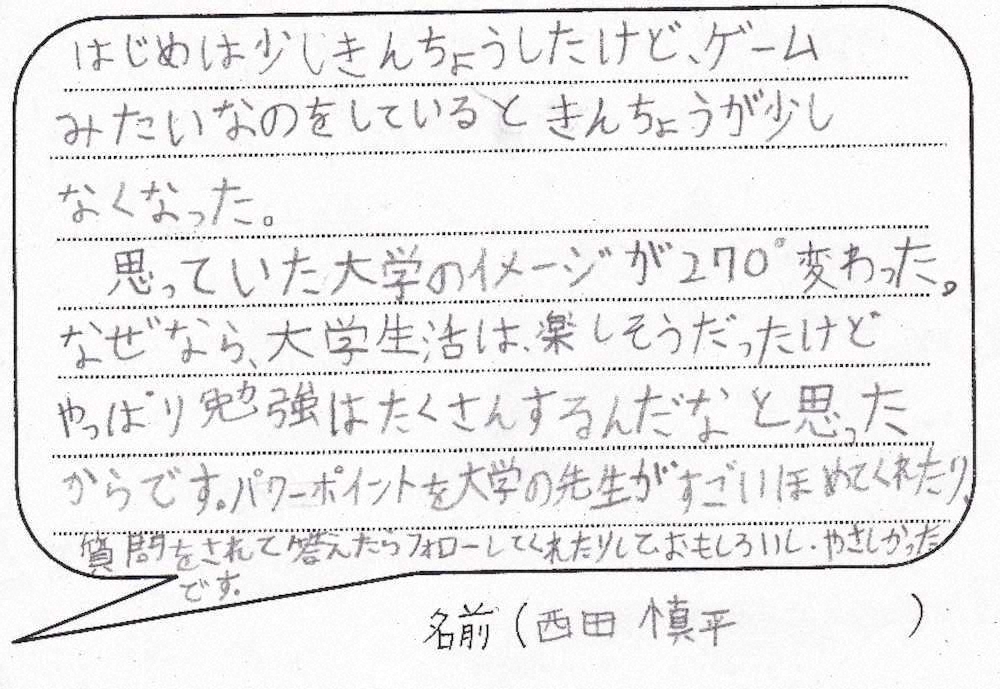 はじめは少しきんちょうしたけど、ゲーム
みたいなのをしているときんちょうが少し
なくなった。
思っていた大学のイメージが270°変わった。
なぜなら、大学生活は、楽しそうだったけど
やっぱり勉強はたくさんするんだなと思った
からです。パワーポイントを大学の先生がすごいほめてくれたり、
質問をされて答えたらフォローしてくれたりして、おもしろいし、やさしかった
です。
名前(西田 慎平)